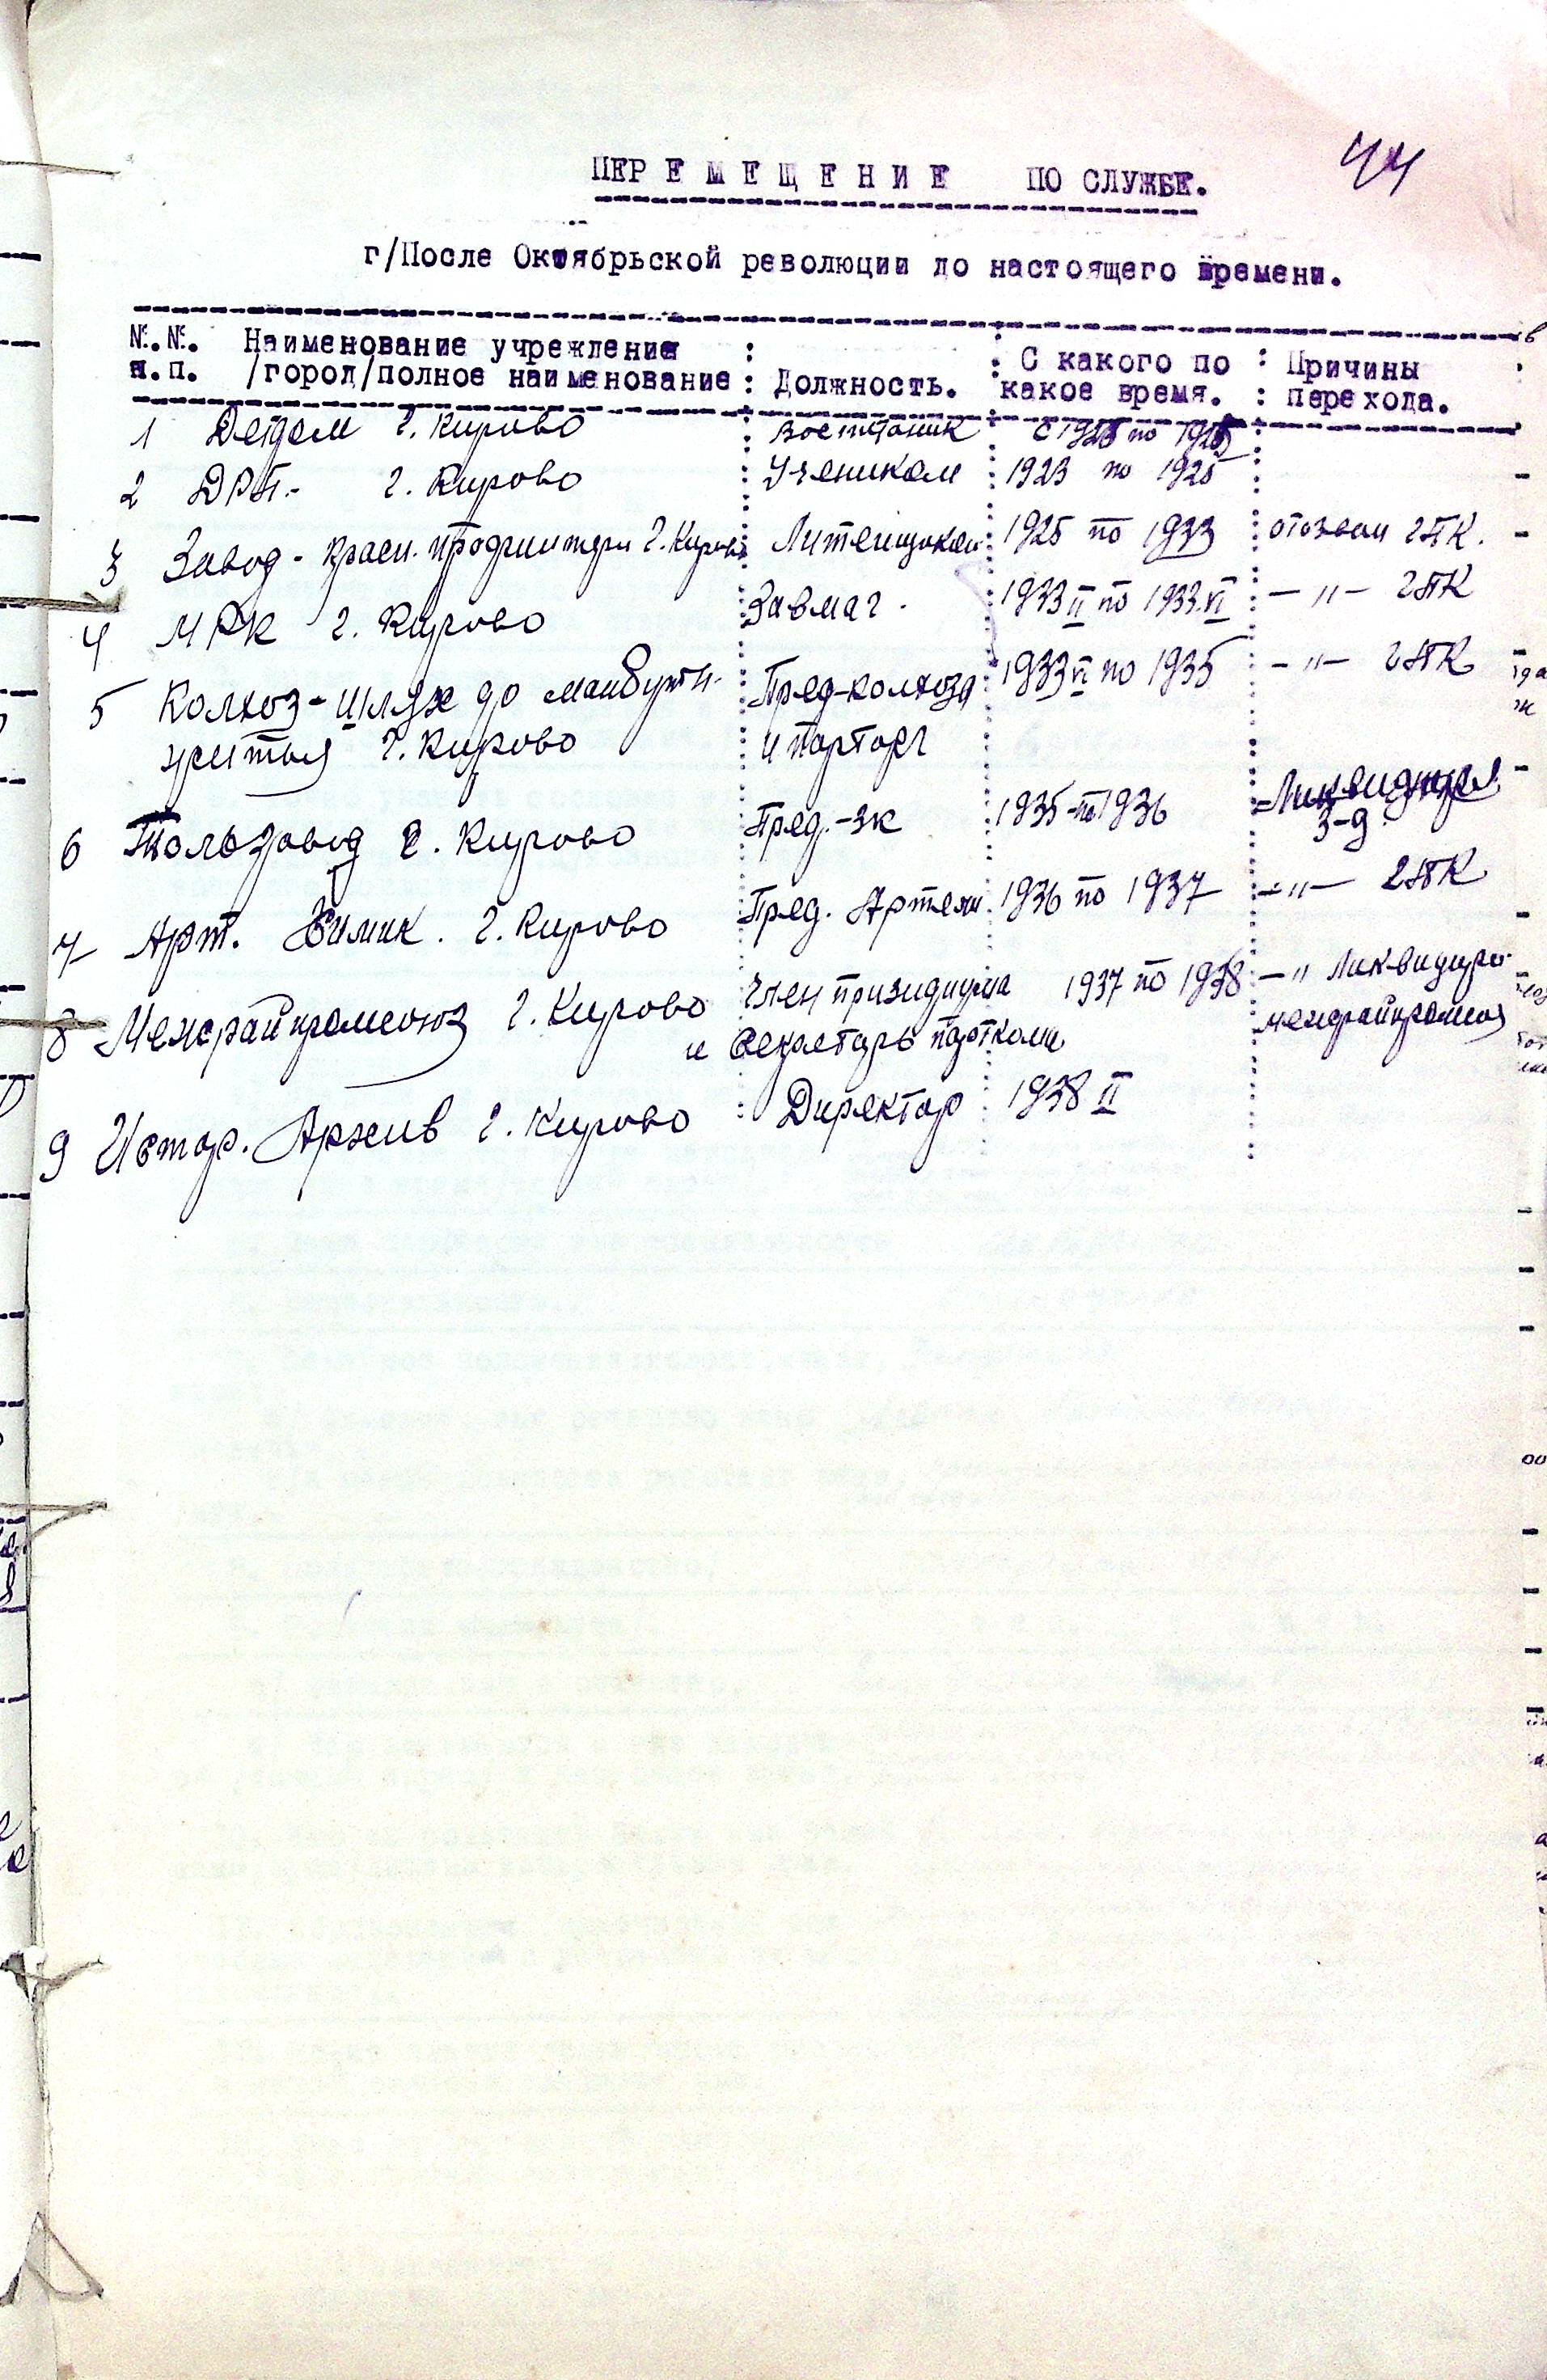 44
ПЕРЕМЕЩЕНИЕ ПО СЛУЖБЕ.
г/После Октябрьской революции до настоящего времени.
№.№. Наименование учреждения : : С какого по : Причины
п.п. /город/полное наименование : Должность. : какое время. : перехода.
1 Детдом г. Кирово воспитаник с по
2 г. Кирово Учеником 1923 по 1925
3 Завод - Красн. Профинтерн г. Кирово Литейщиком 1925 по 1933 отозван ГПК.
4 МРК г. Кирово Завмаг. 1933 II по 1933 VI — „ — ГПК
5 Колхоз - Шлях до майбутн. Пред-колхоза 1933 VI по 1935 — „ — ГПК
життя г. Кирово и парторг
6 Толь завод г. Кирово Пред.-зк 1935 - по 1936 Ликвидация
з-д
7 Арт. Химик. г. Кирово Пред. Артели 1936 по 1937 — „ — ГПК
8 Межрайпромсоюз г. Кирово Член призидиума 1937 по 1938 — „ Ликвидиро-
и секретарь парткома межрайпромсоюз
9 Истор. Архив г. Кирово Директор 1938 II